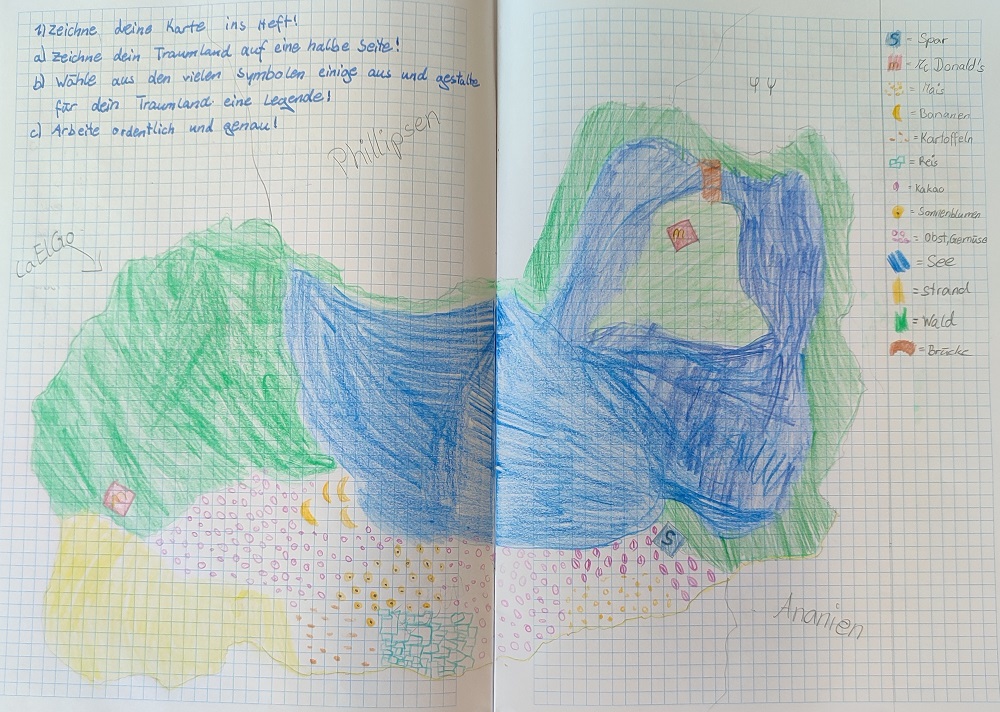 1) Zeichne deine Karte ins Heft!
a) Zeichne dein Traumland auf eine halbe Seite!
b) Wähle aus den vielen Symbolen einige aus und gestalte
für dein Traumland eine Legende!
c) Arbeite ordentlich und genau!
Phillipsen
CaElGo
Ananien
m
S
S = Spar
m = Mc Donald's
= Mais
= Bananen
= Kartoffeln
= Reis
= Kakao
= Sonnenblumen
= Obst, Gemüse
= See
= Strand
= Wald
= Brücke